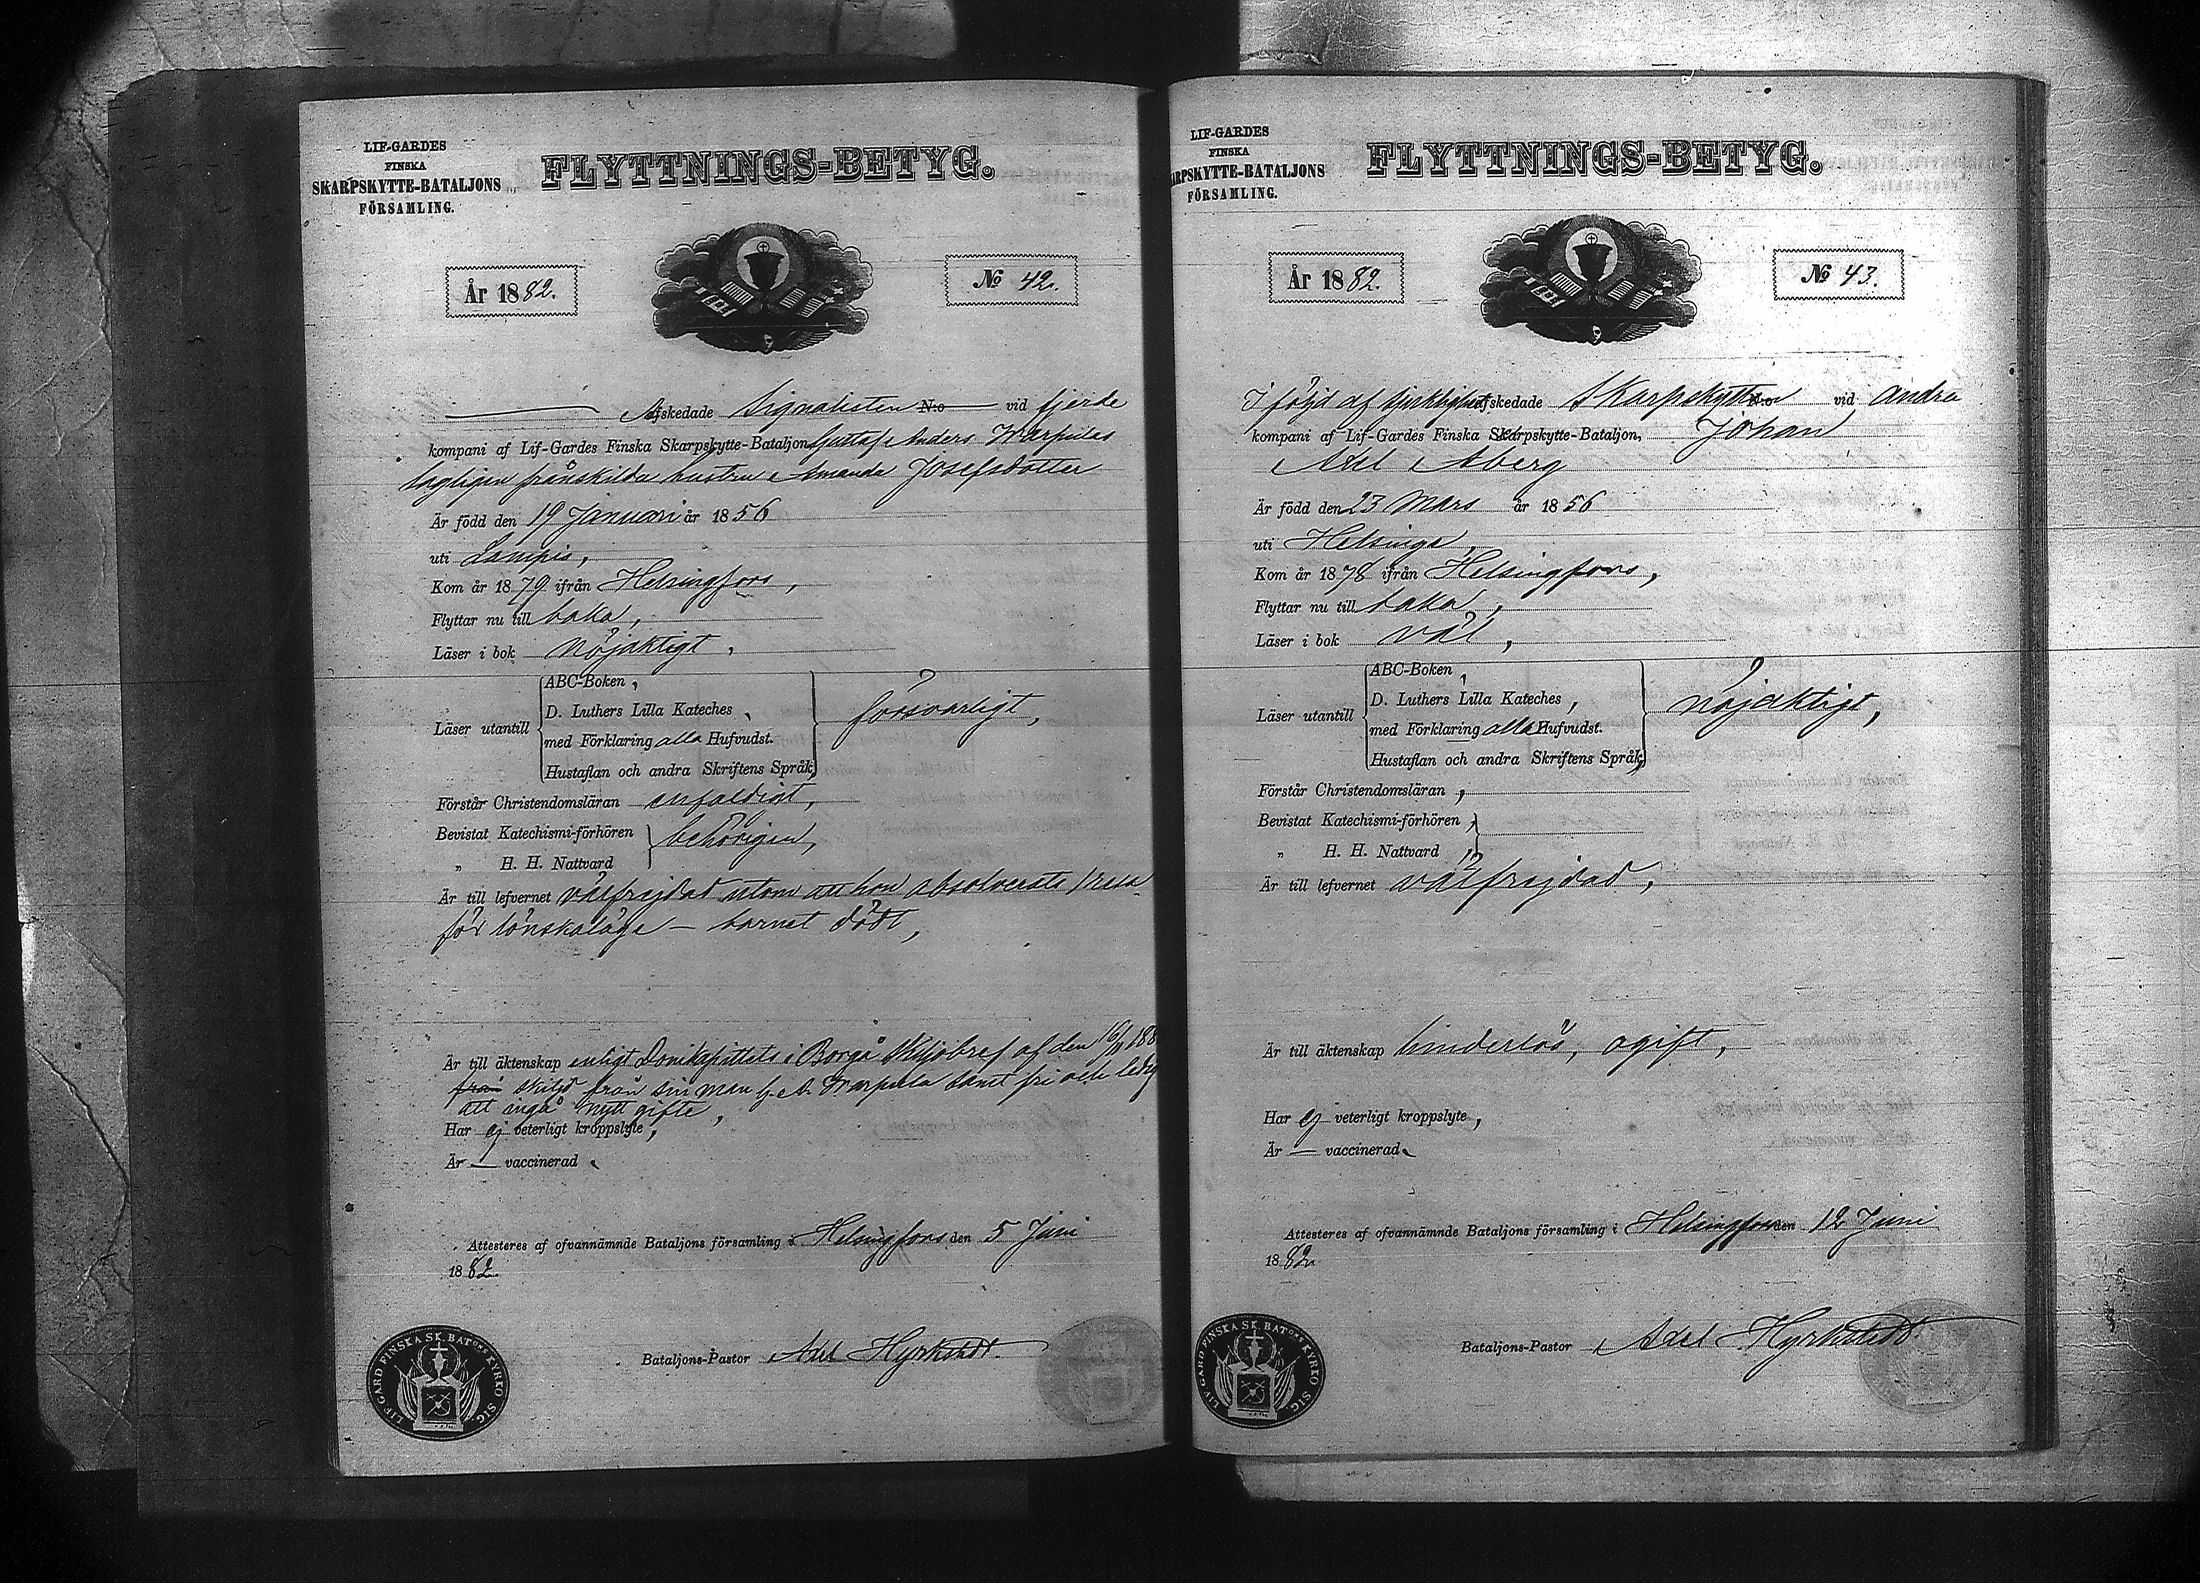 LIF-GARDES
FINSKA
SKARPSKYTTE-BATALJONS
FÖRSAMLING.
FLYTTNINGS-BETYG.
År 1882.
No 42.
Afskedade Signalisten N:o vid fjerde
kompani af Lif-Gardes Finska Skarpskytte-Bataljon Gustaf Anders Warpulas
lagligen frånskilda hustru Amanda Josefsdotter
Är född den 19 Januari år 1856
uti Lampis,
Kom år 1879 ifrån Helsingfors,
Flyttar nu till baka,
Läser i bok nöjaktigt,
ABC-Boken,
D. Luthers Lilla Kateches,
Läser utantill
med Förklaring alla Hufvudst.
försvarligt,
Hustaflan och andra Skriftens Språk,
Förstår Christendomsläran enfaldigt,
Bevistat Katechismi-förhören
behörigen,
„ H. H. Nattvard
Är till lefvernet välfrejdad utom att hon absolverats 1 resa
för lönskaläge — barnet dödt,
Är till äktenskap enligt Domkapitlets i Borgå skiljobref af den 16/11 188
från skiljd från sin man G. A. Warpula samt fri och ledig
att ingå nytt gifte,
Har ej veterligt kroppslyte,
Är — vaccinerad.
Attesteres af ofvannämnde Bataljons församling i Helsingfors den 5 Juni
1882.
Bataljons-Pastor Axel Hyrkstedt.
LIF GARD FINSKA SK. BAT:ons KYRKO SIG.
LIF-GARDES
FINSKA
ARPSKYTTE-BATALJONS
FÖRSAMLING.
FLYTTNINGS-BETYG.
År 1882.
No 43.
I följd af sjuklighet afskedade Skarpskytten N:o vid andra
kompani af Lif-Gardes Finska Skarpskytte-Bataljon, Johan
Axel Åberg
Är född den 23 Mars år 1856
uti Helsinge,
Kom år 1878 ifrån Helsingfors,
Flyttar nu till baka,
Läser i bok väl,
ABC-Boken,
D. Luthers Lilla Kateches,
Läser utantill
med Förklaring alla Hufvudst.
nöjaktigt,
Hustaflan och andra Skriftens Språk,
Förstår Christendomsläran,
Bevistat Katechismi-förhören,
„ H. H. Nattvard,
Är till lefvernet välfrejdad,
Är till äktenskap hinderlös, ogift,
Har ej veterligt kroppslyte,
Är — vaccinerad.
Attesteres af ofvannämnde Bataljons församling i Helsingfors den 12 Juni
1882.
Bataljons-Pastor Axel Hyrkstedt.
LIF GARD FINSKA SK. BAT:ons KYRKO SIG.